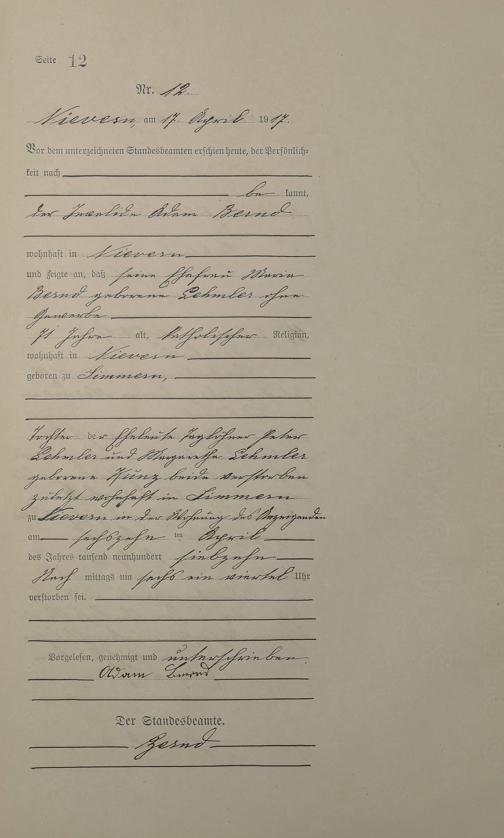 Seite 12
Nr. 12.
Nievern, am 17. April 1917.
Vor dem unterzeichneten Standesbeamten erschien heute, der Persönlich-
keit nach
be kannt,
der Invalide Adam Bernd
wohnhaft in Nievern
und zeigte an, daß seine Ehefrau Maria
Bernd geborene Lehmler ohne
Gewerbe
71 Jahre alt, katholischer Religion,
wohnhaft in Nievern
geboren zu Simmern,
Tochter der Eheleute Taglöhner Peter
Lehmler und Margarethe Lehmler
geborene Kunz beide verstorben
zuletzt wohnhaft in Simmern
zu Nievern in der Wohnung des Anzeigenden
am sechszehn ten April
des Jahres tausend neunhundert siebzehn
Nach mittags um sechs ein viertel Uhr
verstorben sei.
Vorgelesen, genehmigt und unterschrieben.
Adam Bernd
Der Standesbeamte.
Bernd